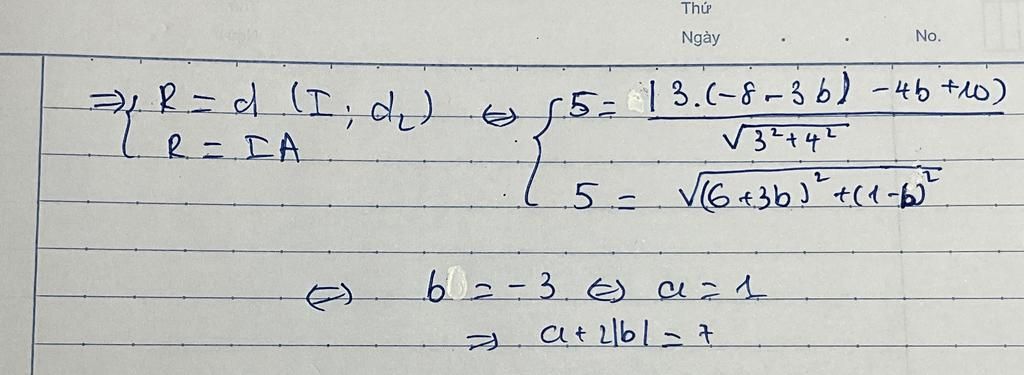 Thứ
Ngày . . No.
⇒ { R = d (I; d₂) ⇔ { 5 = |3.(-8-3b) -4b+10) / √3²+4²
R = IA
5 = √(6+3b)²+(1-b)²
⇔ b = -3 ⇔ a = 1
⇒ a+2|b| = 7